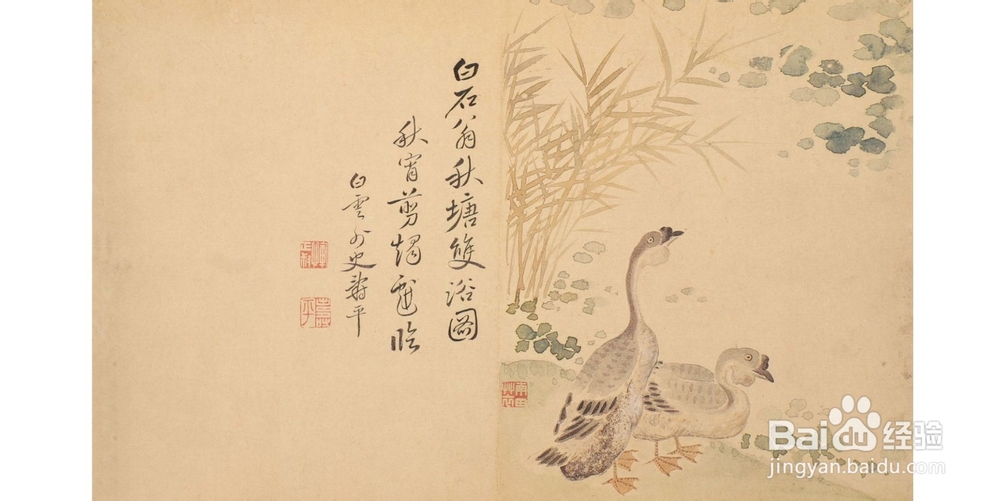 白石翁秋塘雙浴圖
秋宵剪燭戲臨
白雲外史壽平
Baidu经验
jingyan.baidu.com